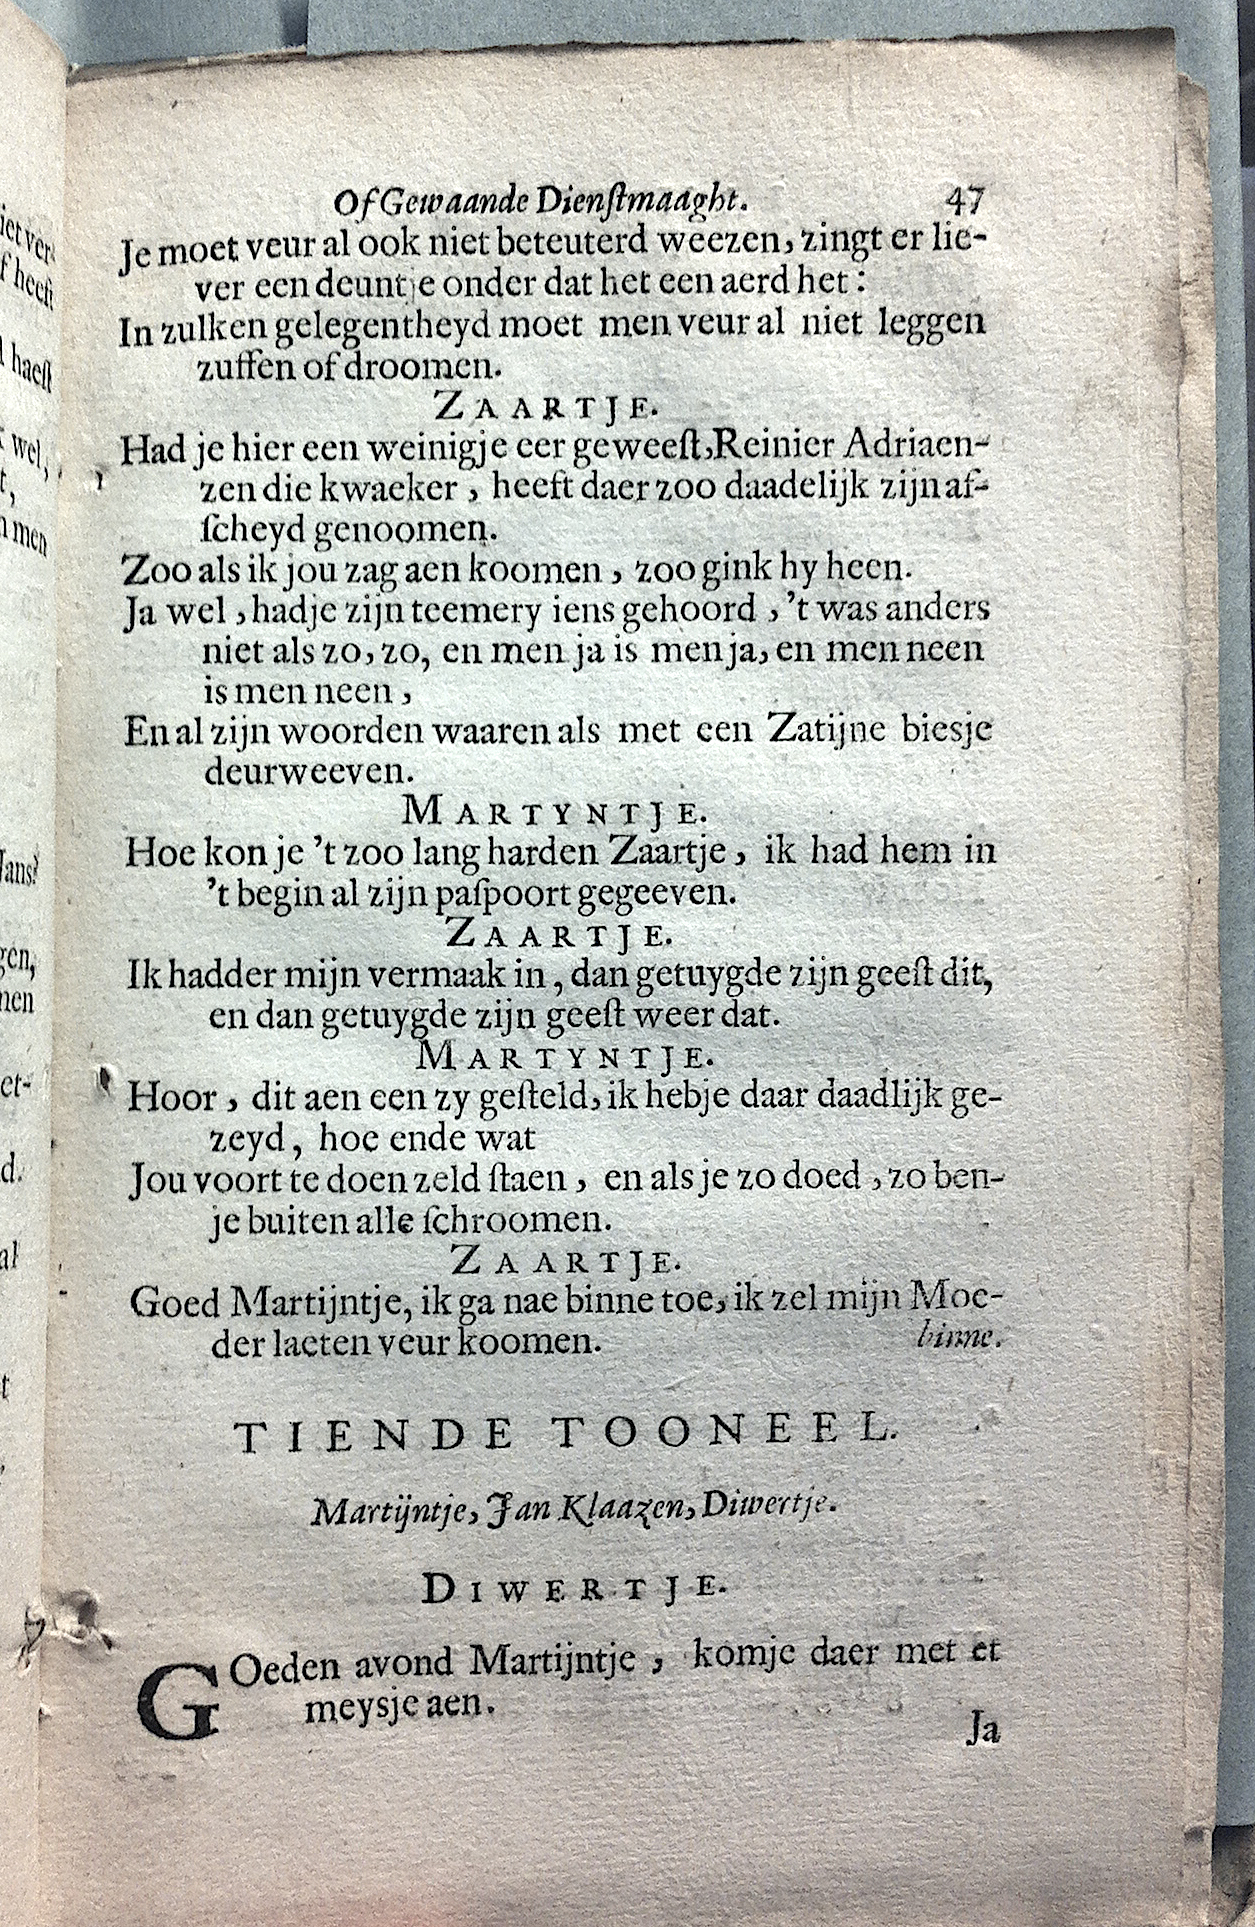 Of Gewaande Dienſtmaaght. 47
Je moet veur al ook niet beteuterd weezen, zingt er lie-
ver een deuntje onder dat het een aerd het:
In zulken gelegentheyd moet men veur al niet leggen
zuffen of droomen.
ZAARTJE.
Had je hier een weinigje eer geweeſt, Reinier Adriaen-
zen die kwaeker, heeft daer zoo daadelijk zijn af-
ſcheyd genoomen.
Zoo als ik jou zag aen koomen, zoo gink hy heen.
Ja wel, hadje zijn teemery iens gehoord, 't was anders
niet als zo, zo, en men ja is men ja, en men neen
is men neen,
En al zijn woorden waaren als met een Zatijne biesje
deurweeven.
MARTYNTJE.
Hoe kon je 't zoo lang harden Zaartje, ik had hem in
't begin al zijn paſpoort gegeeven.
ZAARTJE.
Ik hadder mijn vermaak in, dan getuygde zijn geeſt dit,
en dan getuygde zijn geeſt weer dat.
MARTYNTJE.
Hoor, dit aen een zy geſteld, ik hebje daar daadlijk ge-
zeyd, hoe ende wat
Jou voort te doen zeld ſtaen, en als je zo doed, zo ben-
je buiten alle ſchroomen.
ZAARTJE.
Goed Martijntje, ik ga nae binne toe, ik zel mijn Moe-
der laeten veur koomen. binne.
TIENDE TOONEEL.
Martijntje, Jan Klaazen, Diwertje.
DIWERTJE.
GOeden avond Martijntje, komje daer met et
meysje aen.
Ja